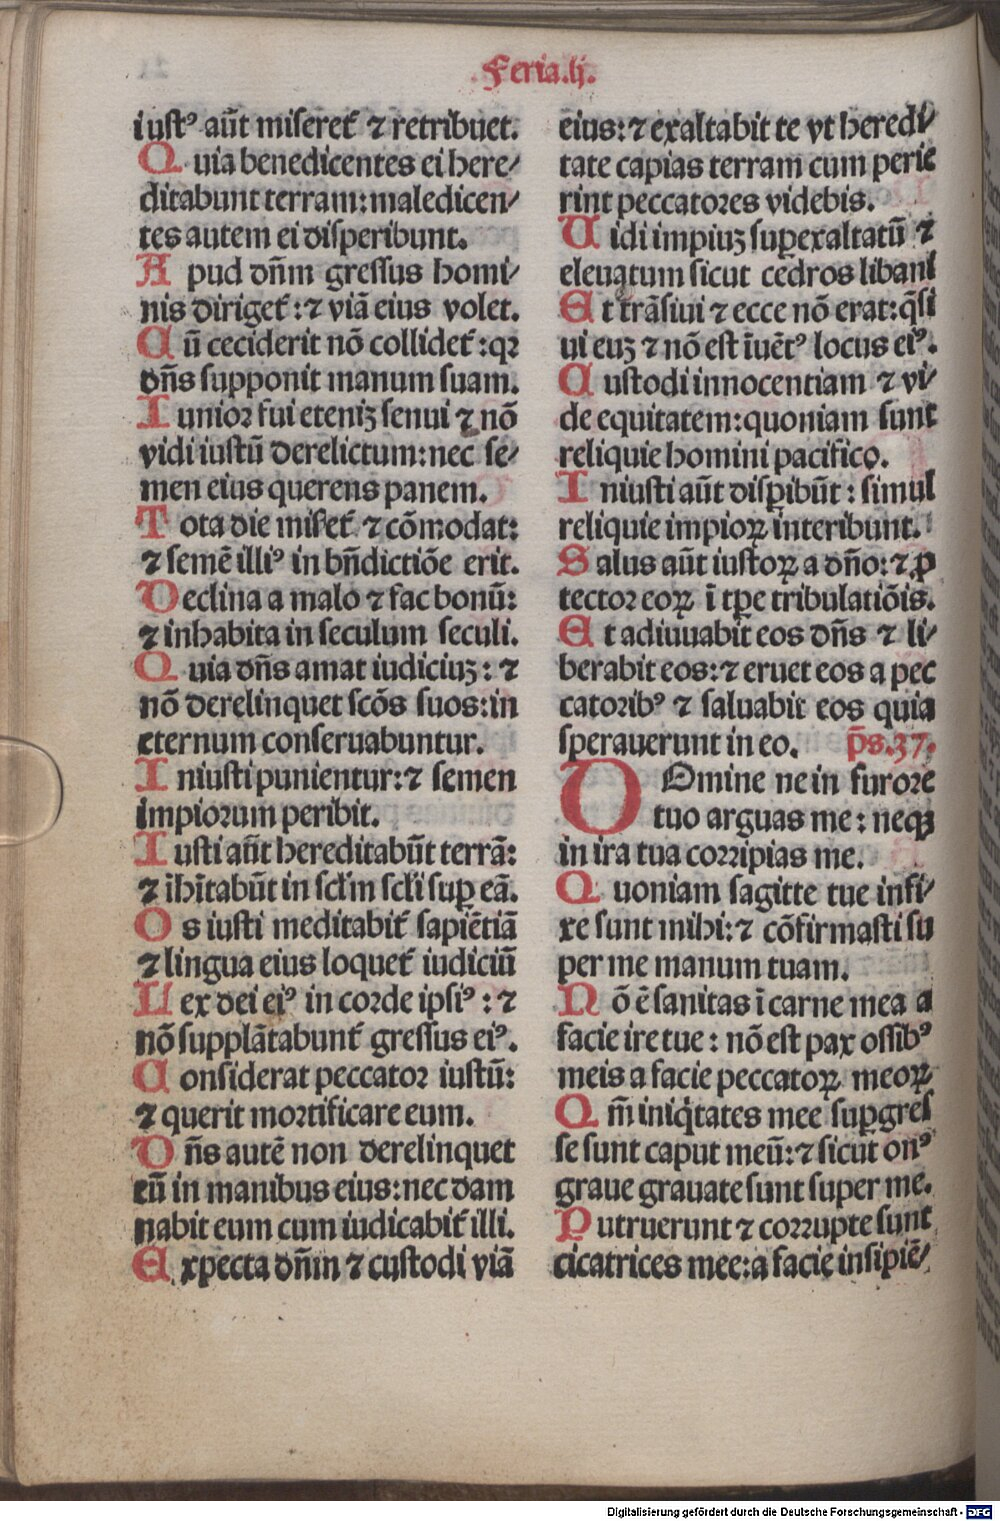 Feria.ij.
iustꝰ aūt miseret᷑ ⁊ retribuet.
Quia benedicentes ei here⸗
ditabunt terram: maledicen⸗
tes autem ei disperibunt.
Apud dn̄m gressus homi⸗
nis diriget᷑: ⁊ viā eius volet.
Cū ceciderit nō collidet᷑: qꝛ
dn̄s supponit manum suam.
Iunioꝛ fui eteniꝫ senui ⁊ nō
vidi iustū derelictum: nec se⸗
men eius querens panem.
Tota die miẜet᷑ ⁊ cōmodat:
⁊ semē illiꝰ in bn̄dictiōe erit.
Declina a malo ⁊ fac bonū:
⁊ inhabita in seculum seculi.
Quia dn̄s amat iudiciuꝫ: ⁊
nō derelinquet scōs suos: in
eternum conseruabuntur.
Iniusti punientur: ⁊ semen
impioꝛum peribit.
Iusti aūt hereditabūt terrā:
⁊ ihi̅tabūt in scl̄m scl̄i suꝑ eā.
Os iusti meditabit᷑ sapiētiā
⁊ lingua eius loquet᷑ iudiciū
Lex dei eiꝰ in corde ipsiꝰ: ⁊
nō supplātabunt᷑ gressus eiꝰ.
Considerat peccatoꝛ iustū:
⁊ querit moꝛtificare eum.
Dn̄s autē non derelinquet
eū in manibus eius: nec dam
nabit eum cum iudicabit᷑ illi.
Expecta dn̄m ⁊ custodi viā
eius: ⁊ exaltabit te vt heredi⸗
tate capias terram cum perie
rint peccatoꝛes videbis.
Uidi impiuꝫ suꝑexaltatū ⁊
eleuatum sicut cedros libani
Et trāsiui ⁊ ecce nō erat: q̄si
ui euꝫ ⁊ nō est īuētꝰ locus eiꝰ.
Custodi innocentiam ⁊ vi⸗
de equitatem: quoniam sunt
reliquie homini pacifico.
Iniusti aūt disꝑibūt: simul
reliquie impioꝝ interibunt.
Salus aūt iustoꝝ a dn̄o: ⁊ ꝓ
tectoꝛ eoꝝ ī tꝑe tribulatiōis.
Et adiuuabit eos dn̄s ⁊ li⸗
berabit eos: ⁊ eruet eos a pec
catoribꝰ ⁊ saluabit eos quia
sperauerunt in eo. p̄s.37.
DOmine ne in furore
tuo arguas me: neqꝫ
in ira tua coꝛripias me.
Quoniam sagitte tue infi⸗
xe sunt mihi: ⁊ cōfirmasti su
per me manum tuam.
Nō ē sanitas ī carne mea a
facie ire tue: nō est pax ossibꝰ
meis a facie peccatoꝝ meoꝝ
Qm̄ iniq̇tates mee suꝑgres
se sunt caput meū: ⁊ sicut onꝰ
graue grauate sunt super me.
Putruerunt ⁊ coꝛrupte sunt
cicatrices mee: a facie insipiē⸗
Digitalisierung gefördert durch die Deutsche Forschungsgemeinschaft - DFG